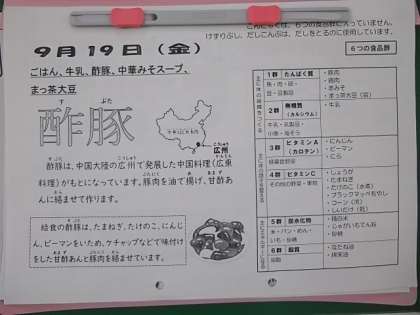 こんにゃくは、6つの食品群に入っていません。
けずりぶし、だしこんぶは、だしをとるのに使用しています。
9月19日（金）
6つの食品群
ごはん、牛乳、酢豚、中華みそスープ、
まっ茶大豆
す ぶた
酢豚
広州
酢豚は、中国大陸の広州で発展した中国料理（広東
料理）がもとになっています。豚肉を油で揚げ、甘酢あ
んに絡ませて作ります。
給食の酢豚は、たまねぎ、たけのこ、にんじ
ん、ピーマンをいため、ケチャップなどで味付け
をした甘酢あんと豚肉を絡ませています。
1群 たんぱく質
魚・肉・卵・
豆・豆製品
・豚肉
・鶏肉
・赤みそ
・まっ茶大豆（豆）
2群 無機質
（カルシウム）
牛乳・乳製品・
小魚・海そう
・牛乳
3群 ビタミンA
（カロテン）
緑黄色野菜
・にんじん
・ピーマン
・にら
4群 ビタミンC
その他の野菜・果物
・しょうが
・たまねぎ
・たけのこ（水煮）
・ブラックマッペもやし
・コーン（冷）
・しいたけ（乾）
5群 炭水化物
米・パン・めん・
いも・砂糖
・精白米
・じゃがいもでん粉
・砂糖
6群 脂質
油脂
・なたね油
・綿実油